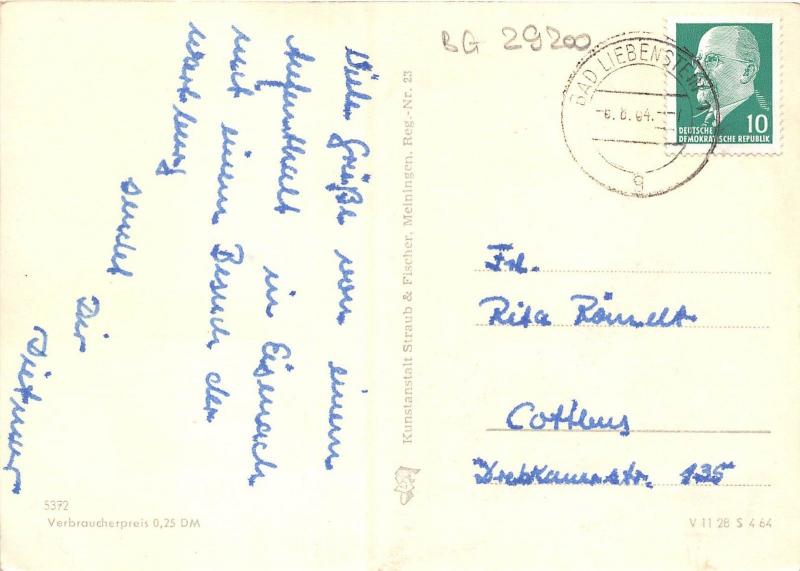 BG 29200
BAD LIEBENSTEIN
DEUTSCHE
DEMOKRATISCHE REPUBLIK
10
g
Viele Grüße von einem
Aufenthalt in Eisenach
mit einem Besuch der
Wartburg
sendet
Dir
Dietmar
Kunstanstalt Straub & Fischer, Meiningen, Reg.-Nr. 23
Frl.
Rita
Cottbus
Drebkauerstr. 135
5372
Verbraucherpreis 0,25 DM
V 11 28 S 4 64